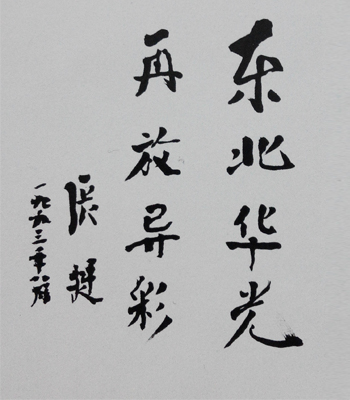 东北华光
再放异彩
张
一九九三年八月